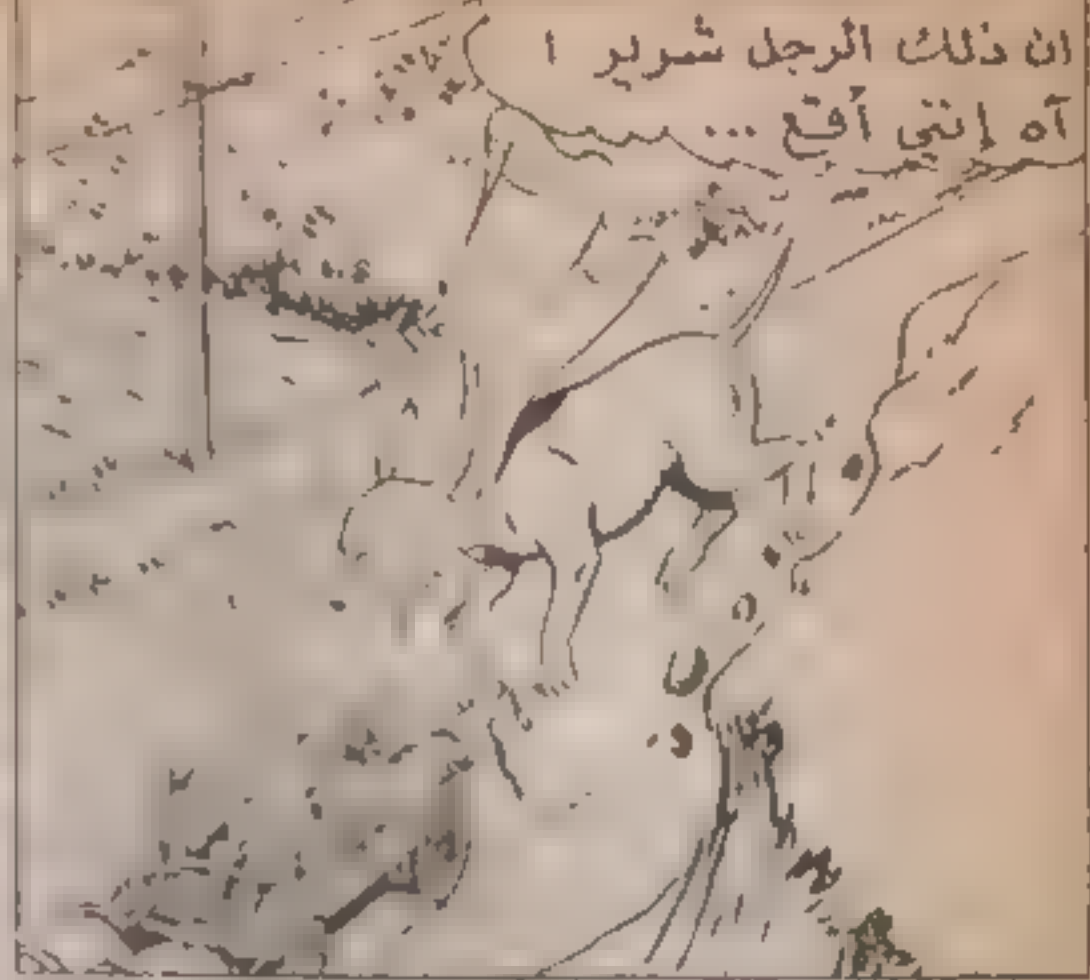 ان ذلك الرجل شرير !
آه إنني أقع ...